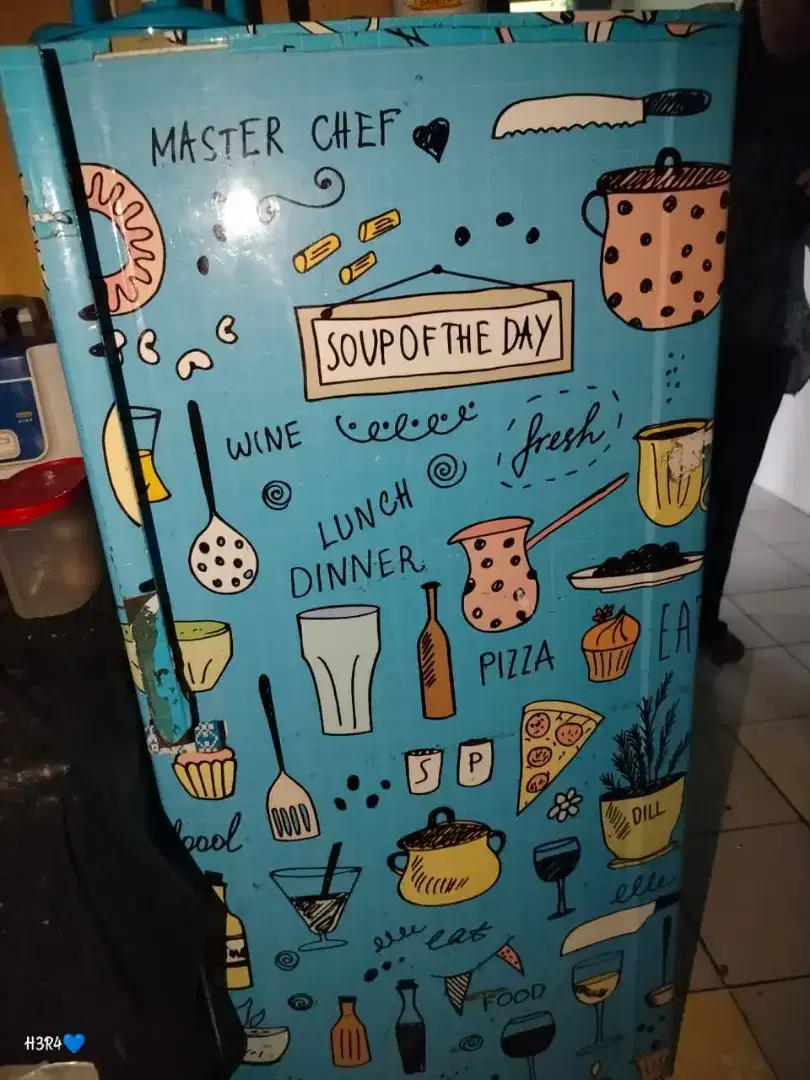 MASTER CHEF
SOUP OF THE DAY
WINE
fresh
LUNCH
DINNER
PIZZA
S P
DILL
eat
FOOD
H3R4💙